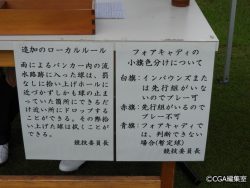 追加のローカルルール
雨によるバンカー内の流
水路跡に入った球は、罰
なしに拾い上げホールに
近づかずしかも球の止ま
っていた箇所にできるだ
け近い所にドロップする
ことができる。その際拾
い上げた球は拭くことが
できる。
競技委員長
フォアキャディの
小旗色分けについて
白旗:インバウンズまた
は先行組がいな
いのでプレー可
赤旗:先行組がいるので
プレー不可
青旗:フォアキャディで
は、判断できない
場合(暫定球)
競技委員長
©CGA編集室